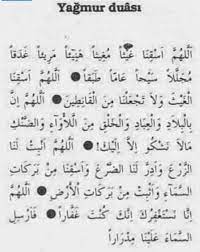 Yağmur duâsı
اَللّٰهُمَّ اَسْقِنَا غَيْثًا مُغِيثًا هَنِيئًا مَرِيئًا غَدَقًا
مُجَلَّلًا سَيْحًا عَامًّا طَبَقًا ● اَللّٰهُمَّ اَسْقِنَا
الْغَيْثَ وَلَا تَجْعَلْنَا مِنَ الْقَانِطِينَ ● اَللّٰهُمَّ اِنَّ
بِالْبِلَادِ وَالْعِبَادِ وَالْخَلْقِ مِنَ اللَّأْوَاءِ وَالضَّنْكِ
مَالَا نَشْكُو اِلَّا اِلَيْكَ ● اَللّٰهُمَّ اَنْبِتْ لَنَا
الزَّرْعَ وَاَدِرَّ لَنَا الضَّرْعَ وَاَسْقِنَا مِنْ بَرَكَاتِ
السَّمَاءِ وَاَنْبِتْ مِنْ بَرَكَاتِ الْاَرْضِ ● اَللّٰهُمَّ
اِنَّا نَسْتَغْفِرُكَ اِنَّكَ كُنْتَ غَفَّارًا ● فَاَرْسِلِ
السَّمَاءَ عَلَيْنَا مِدْرَارًا